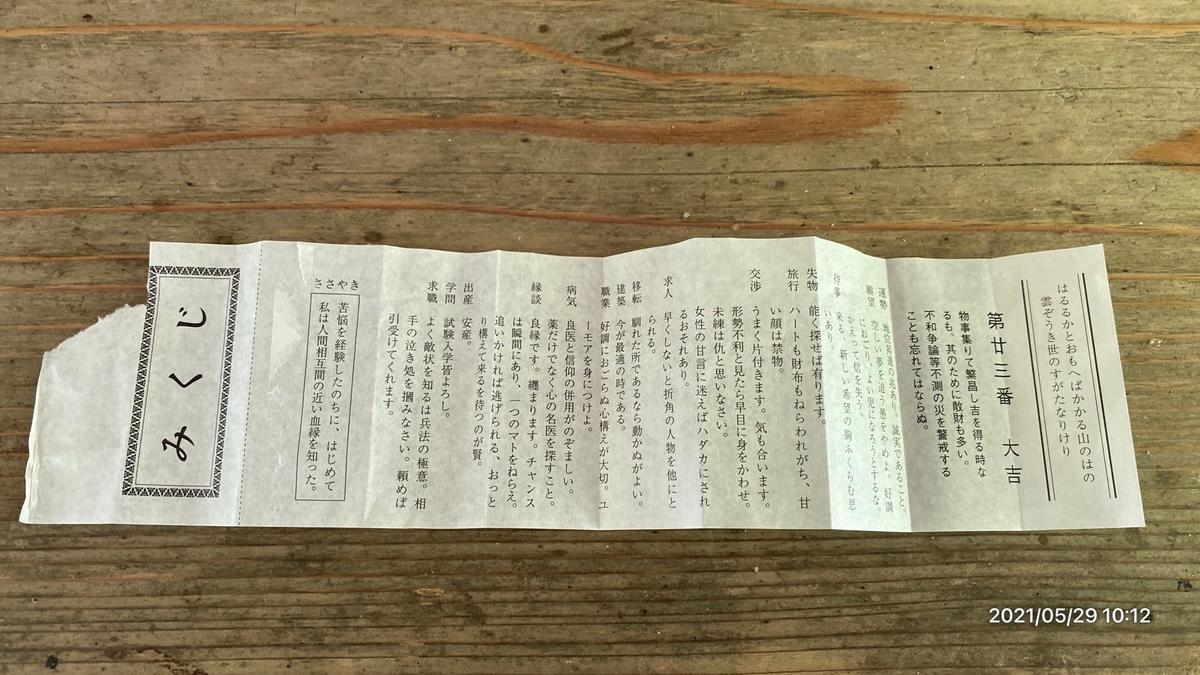 はるかとおもへばかかる山のはの
雲ぞうき世のすがたなりけり
第廿三番　大吉
物事集りて繁昌し吉を得る時な
るも、其のために散財も多い。
不和争論等不測の災を警戒する
ことも忘れてはならぬ。
運勢　地位昇進の兆あり。誠実であること。
願望　空しい夢を追う愚をやめよ。好調
におごり、よい児になろうとするな。
かえって信を失う。
待事　来る。新しい希望の胸ふくらむ思
いあり。
失物　能く探せば有ります。
旅行　ハートも財布もねらわれがち、甘
い顔は禁物。
交渉　うまく片付きます。気も合います。
形勢不利と見たら早目に身をかわせ。
未練は仇と思いなさい。
女性の甘言に迷えばハダカにされ
るおそれあり。
求人　早くしないと折角の人物を他にと
られる。
移転　馴れた所であるなら動かぬがよい。
建築　今が最適の時である。
職業　好調におごらぬ心構えが大切。ユ
ーモアを身につけよ。
病気　良医と信仰の併用がのぞましい。
薬だけでなく心の名医を探すこと。
縁談　良縁です。纏まります。チャンス
は瞬間にあり、一つのマトをねらえ。
追いかければ逃げられる、おっと
り構えて来るを待つのが賢。
出産　安産。
学問　試験入学皆よろし。
求職　よく敵状を知るは兵法の極意。相
手の泣き処を摑みなさい。頼めば
引受けてくれます。
ささやき
苦悩を経験したのちに、はじめて
私は人間相互間の近い血縁を知った。
みくじ
2021/05/29 10:12